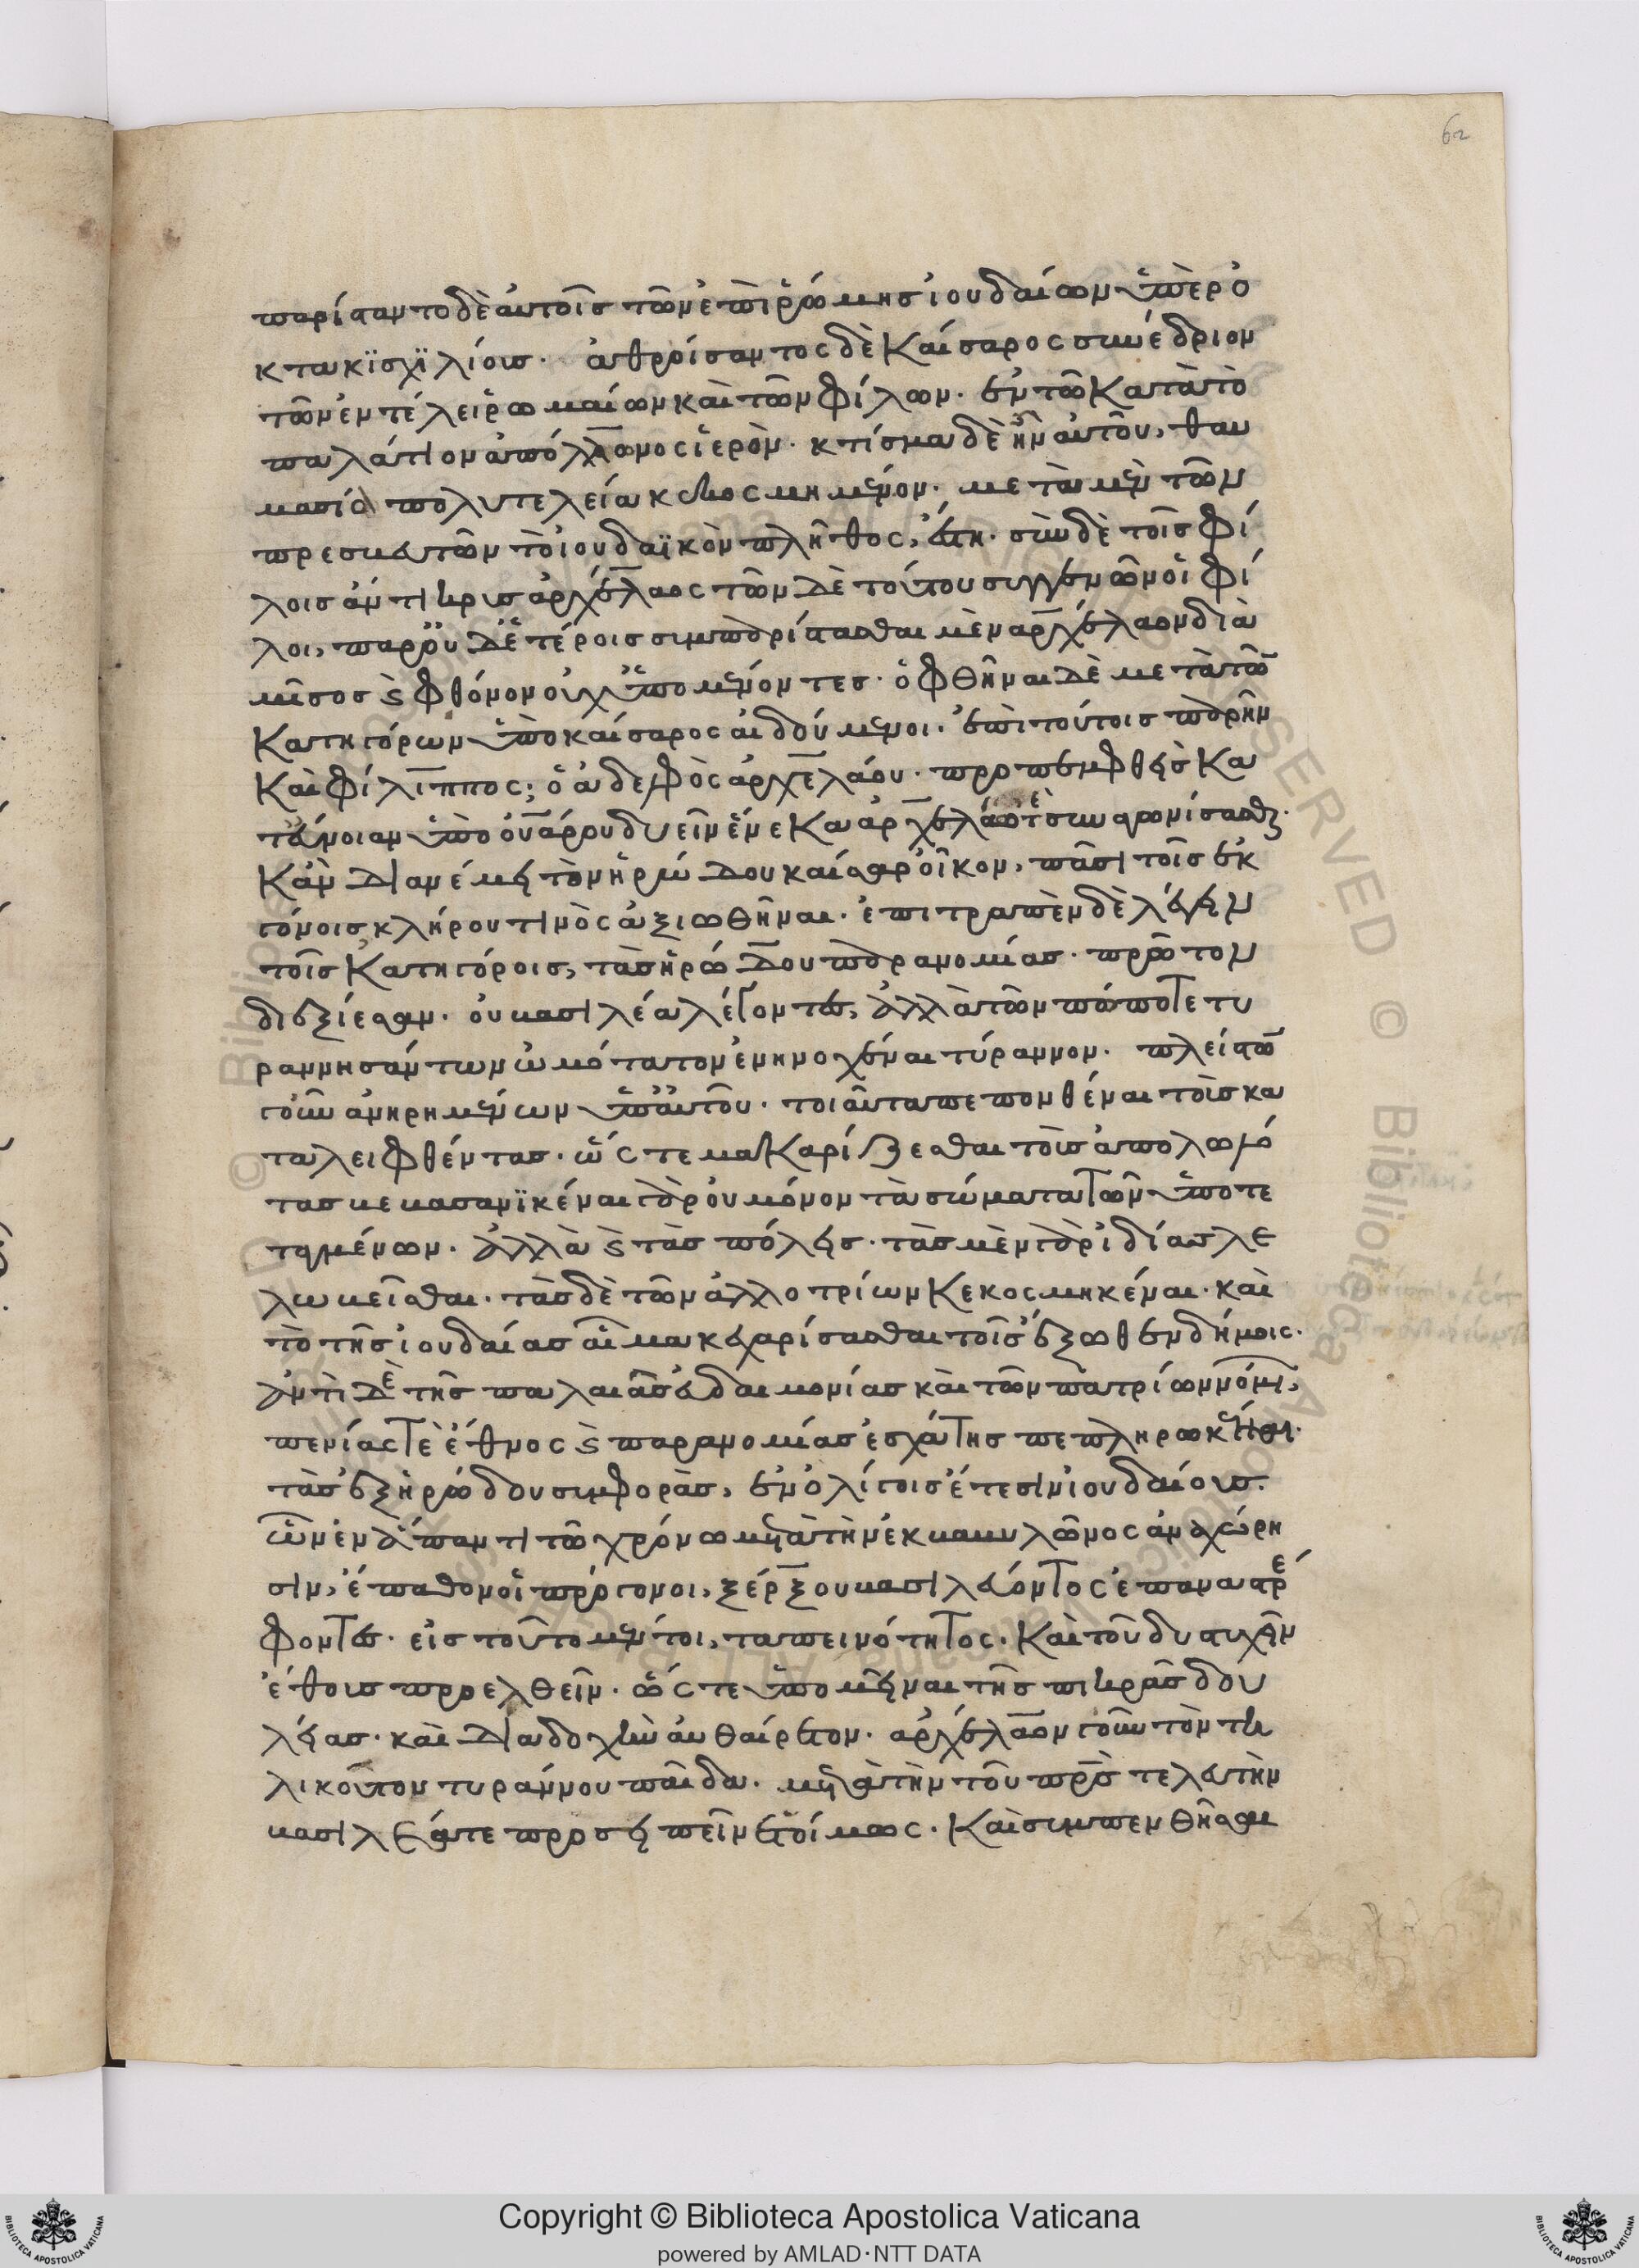 62
παρίσταντο δὲ αὐτοῖς τῶν ἐπὶ ῥώμης ἰουδαίων ὑπὲρ ὀ
κτακϊσχϊλίους. ἀθροίσαντος δὲ Καίσαρος συνέδριον
τῶν ἐν τέλει ῥωμαίων καὶ τῶν φίλων. ἐν τῶ Κατὰ τὸ
παλάτιον ἀπόλλωνος ἱερὸν. κτίσμα δὲ ἦν αὐτοῦ, θαυ
μασία πολυτελεία κεκοσμημένον. μετὰ μὲν τῶν
πρεσβευτῶν τὸ ἰουδαϊκὸν πλῆθος, ἔστη. σὺν δὲ τοῖς φί
λοις ἄντικρυς ἀρχέλαος τῶν δὲ τούτου συγγενῶν οἱ φί
λοι, παρ' οὐδετέροις συμπαρίστασθαι μὲν ἀρχέλαον διὰ
μῖσος καὶ φθόνον οὐχ ὑπομένοντες. ὀφθῆναι δὲ μετὰ τῶν
Κατηγόρων ὑπὸ καίσαρος αἰδούμενοι. ἐπὶ τούτοις παρῆν
Καὶ φίλιππος, ὁ ἀδελφὸς ἀρχελάου. προπεμφθεὶς Κα
τ' εὔνοιαν ὑπὸ οὐάρου δυεῖν ἕνεκα ἀρχελάω τὲ συναγωνίσασθαι.
Κἂν διανέμει τὸν ἡρώδου καίσαρ οἶκον, πᾶσι τοῖς ἐκ
γόνοις κλήρου τινὸς ἀξιωθῆναι. ἐπιτραπὲν δὲ λέγειν
τοῖς Κατηγόροις, τὰς ἡρώδου παρανομίας. πρῶτον
διεξίεσαν. οὐ βασιλέα λέγοντες, ἀλλὰ τῶν πώποτε τυ
ραννησάντων ὠμότατον ἐνηνοχέναι τύραννον. πλείστων
γοῦν ἀνηρημένων ὑπ' αὐτοῦ. τοιαῦτα πεπονθέναι τοὺς κα
ταλειφθέντας. ὥστε μακαρίζεσθαι τοὺς ἀπολωλό
τας βεβασανϊκέναι γὰρ οὐ μόνον τὰ σώματα τῶν ὑποτε
ταγμένων. ἀλλὰ καὶ τὰς πόλεις. τὰς μὲν γὰρ ἰδίας λε
λωβεῖσθαι. τὰς δὲ τῶν ἀλλοτρίων Κεκοσμηκέναι. καὶ
τὸ τῆς ἰουδαίας αἷμα κεχαρίσασθαι τοῖς ἔξωθεν δήμοις.
ἀντὶ δὲ τῆς παλαιᾶς εὐδαιμονίας καὶ τῶν πατρίων νόμων,
πενίας τὲ ἔθνος καὶ παρανομίας ἐσχάτης πεπληρωκέναι.
τὰς ἐξ ἡρώδου συμφορὰς, ἐν ὀλίγοις ἔτεσιν ἰουδαίους.
ὧν ἐν ἅπαντι τῶ χρόνω μετὰ τὴν ἐκ βαβυλῶνος ἀναχώρη
σιν, ἔπαθον οἱ πρόγονοι, ξέρξου βασιλεύοντος ἐπαναστρέ
φοντες. εἰς τοῦτο μέν τοι, ταπεινότητος. Καὶ τοῦ δυστυχεῖν
ἔθους προελθεῖν. ὥστε ὑπομεῖναι τῆς πικρᾶς δου
λείας. καὶ διαδοχὴν αὐθαίρετον. ἀρχέλαον γοῦν τὸν τη
λικούτου τυράννου παῖδα. μετὰ τὴν τοῦ πατρὸς τελευτὴν
βασιλέα τε προσειπεῖν ἑτοίμως. Καὶ συμπενθῆσαι
Copyright © Biblioteca Apostolica Vaticana
powered by AMLAD·NTT DATA